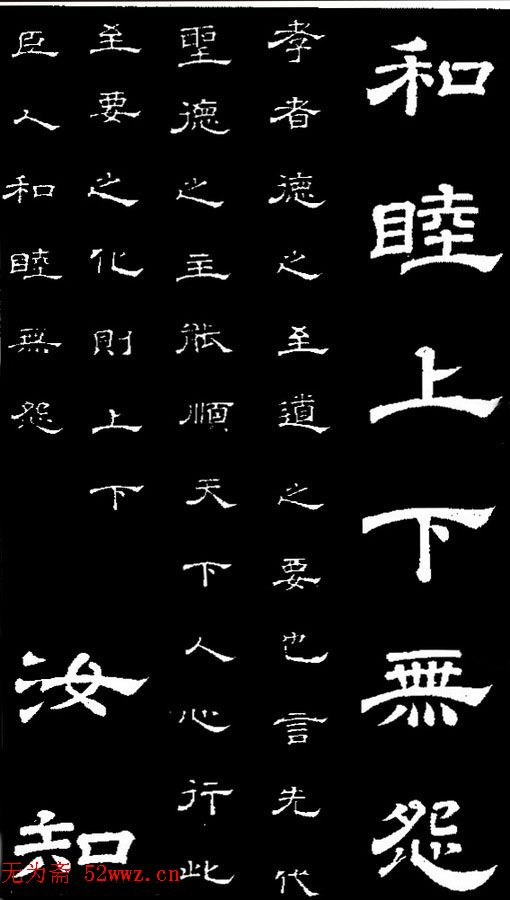 和睦上下無怨
孝者德之至道之要也言先代
聖德之主能順天下人心行此
至要之化則上下
臣人和睦無怨
汝知
无为斋 52wwz.cn